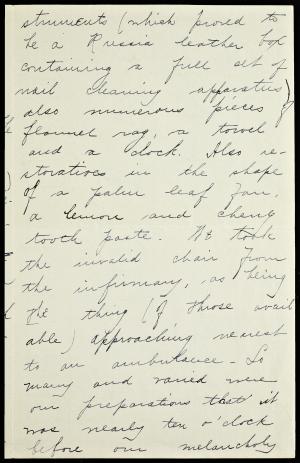 struments (which proved to
be a Russia leather box
containing a full set of
nail cleaning apparatus)
also numerous pieces of
flannel rag, a towel
and a clock. Also re-
storatives in the shape
of a palm leaf fan,
a lemon and cherry
tooth paste. We took
the invalid chair from
the infirmary, as being
the thing (of those avail
able) approaching nearest
to an ambulance - So
many and varied were
our preparations that it
was nearly ten o'clock
before our melancholy